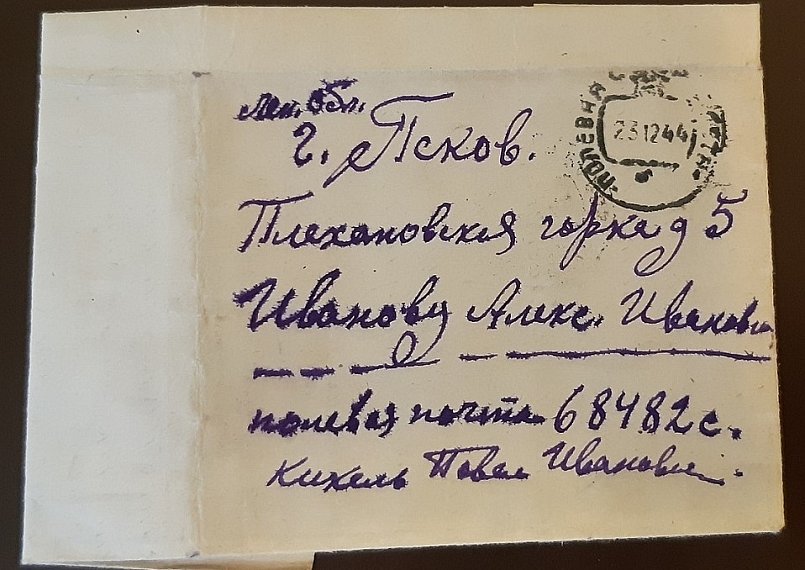 Лен. обл.
г. Псков.
ПОЛЕВАЯ ПОЧТА
231244
б
Плехановская горка д 5
Иванову Алекс. Иванович
полевая почта 68482 с.
Кихель Павел Иванович.